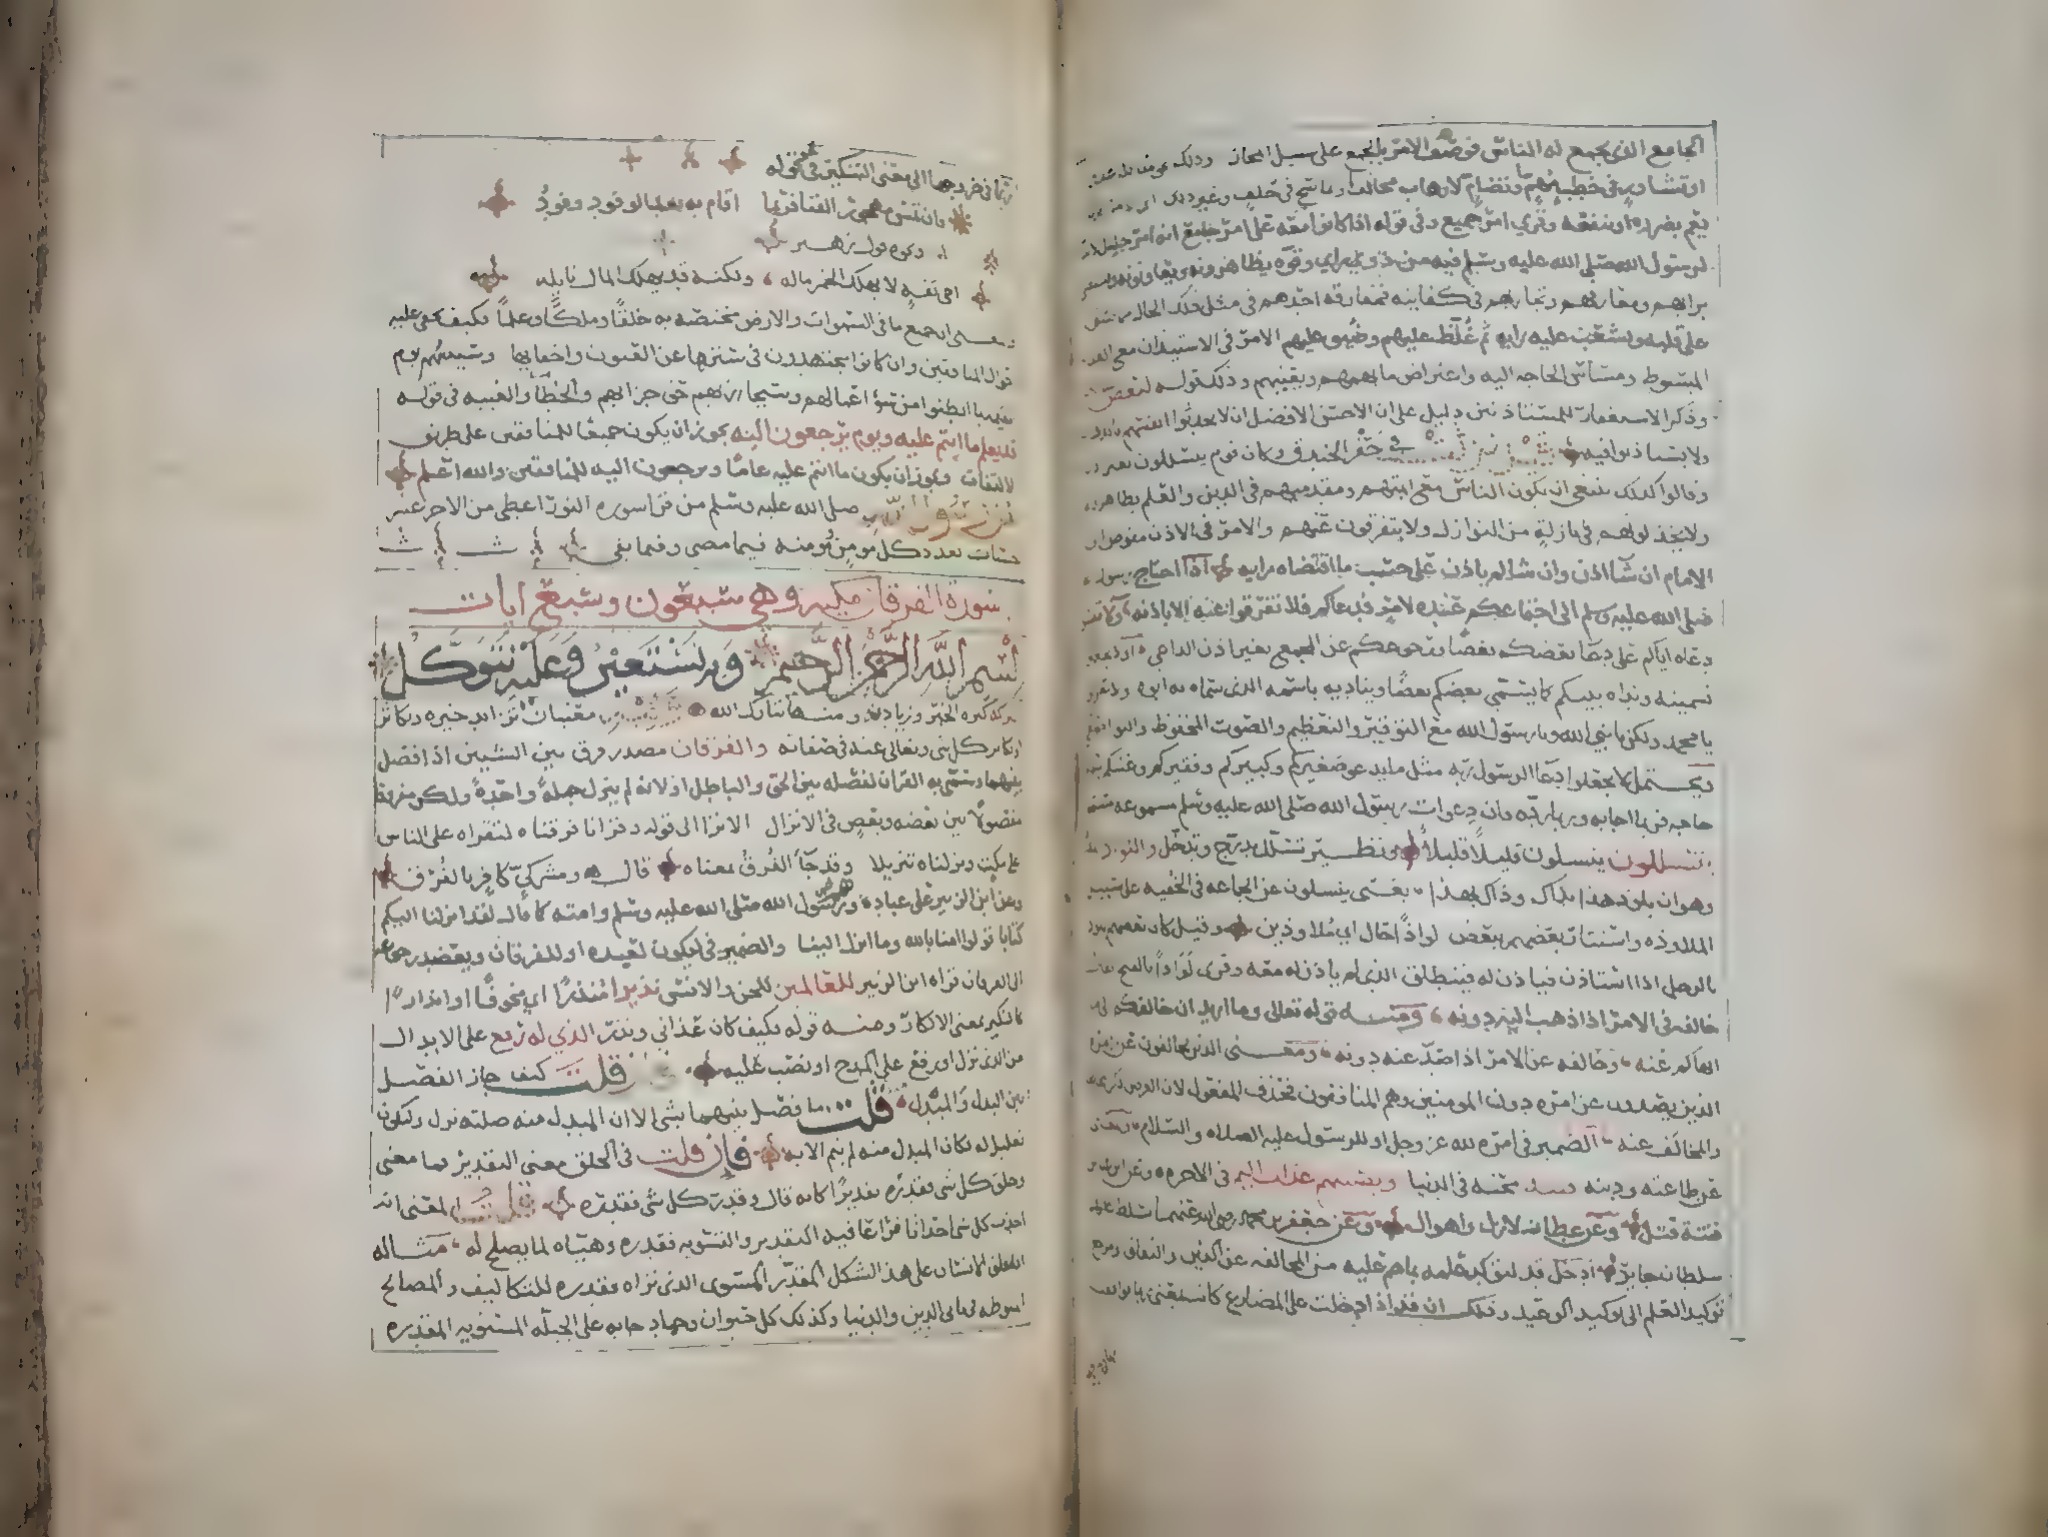 الجامع الذي يجمع له الناس فوصف الامر بالجمع على سبيل المجاز وذلك نحو
او تشاور في خطب مهم وتضام لارهاب مخالف او تماسح في حلف وغير ذلك
يعم بضرره او بنفعه وقري امر جميع وفي قوله اذا كانوا معه على امر جامع انه امر جليل
لرسول الله صلى الله عليه وسلم فيه من ذوي راي وقوة يظاهرونه ويعاونونه
برايهم ومعارفهم وتجاربهم في كفايته فمفارقة احدهم في مثل تلك الحال مما يشق
على قلبه ويشعث عليه رايه ثم غلظ عليهم وضيق عليهم الامر في الاستيذان مع العذر
المبسوط ومساس الحاجه اليه واعتراض ما يهمهم ويعنيهم وذلك قوله لبعض
وذكر الاستغفار للمستاذنين دليل على ان الاحسن الافضل ان لا يحدثوا انفسهم
ولا يستاذنوا فيه في حفر الخندق وكان قوم يتسللون بغير
وقالوا كذلك ينبغي ان يكون الناس مع ايمتهم ومقدميهم في الدين والعلم يظاهرونهم
ولا يخذلونهم في نازلة من النوازل ولا يتفرقون عنهم والامر في الاذن مفوض الى
الامام ان شا اذن وان شا لم ياذن على حسب ما اقتضاه رايه اذا احتاج رسول
صلى الله عليه وسلم الى اجتماعكم عنده لامر فدعاكم فلا تفرقوا عنه الا باذنه ولا تقيسوا
دعاه اياكم على دعا بعضكم بعضا ورجوعكم عن المجمع بغير اذن الداعي
تسمينه ونداه بينكم كما يسمي بعضكم بعضا ويناديه باسمه الذي سماه به ابوه ولا تقولوا
يا محمد ولكن يا نبي الله ويا رسول الله مع التوقير والتعظيم والصوت المخفوض والتواضع
ويحتمل لا تجعلوا دعا الرسول ربه مثل ما يدعو صغيركم وكبيركم وفقيركم وغنيكم
حاجه فربما اجابه وربما رده وان دعوات رسول الله صلى الله عليه وسلم مسموعه
يتسللون ينسلون قليلا قليلا ونظير تسلل تدرج وتدخل واللواذ
وهو ان يلوذ هذا بذاك وذاك بهذا يعني ينسلون عن الجماعه في الخفيه على سبيل
الملاوذه واستتار بعضهم ببعض لواذا حال اي ملاوذين وقيل كان بعضهم يلوذ
بالرجل اذا استاذن فياذن له فينطلق الذي لم ياذن له معه وقري لواذا بالفتح
خالفه في الامر اذا ذهب اليه دونه ومنه قوله تعالى وما اريد ان خالفكم الى
انهاكم عنه وخالفه عن الامر اذا صد عنه دونه ومعنى الذين يخالفون عن امره
الذين يصدون عن امره دون المومنين وهم المنافقون فحذف المفعول لان الغرض ذكر
والمخالف عنه الضمير في امره لله عز وجل او للرسول عليه الصلاه والسلام
عن طاعته ودينه فتنه محنه في الدنيا او يصيبهم عذاب اليم في الاخره وعن ابن عباس
فتنة قتل وعن عطا زلازل واهوال وعن جعفر بن محمد رضي الله عنهما تسلط عليهم
سلطان جاير ادخل قد ليوكد علمه بما هم عليه من المخالفه عن الدين والنفاق ومرجع
توكيد العلم الى توكيد الوعيد وذلك ان قد اذا ادخلت على المضارع كانت بمعنى ربما
ربما في خروجها الى معنى التكثير في نحو قوله
فان تمس مهجور الفنا فربما اقام به بعد الوفود وفود
ونحوه قول زهير
اخي ثقة لا يهلك الخمر ماله ولكنه قد يهلك المال نايله
ومعنى ان جميع ما في السموات والارض مختصه به خلقا وملكا وعلما فكيف يخفى عليه
احوال المنافقين وان كانوا يجتهدون في سترها عن العيون واخفايها وسينبيهم يوم
القيمه بما ابطنوا من سو اعمالهم وسيجازيهم حق جزايهم والخطاب والغيبه في قوله
قد يعلم ما انتم عليه ويوم يرجعون اليه يجوز ان يكون جميعا للمنافقين على طريق
الالتفات ويجوز ان يكون ما انتم عليه عاما ويرجعون اليه للمنافقين والله اعلم
صلى الله عليه وسلم من قرا سوره النور اعطي من الاجر عشر
حسنات بعدد كل مومن ومومنه فيما مضى وفيما بقي
سورة الفرقان مكيه وهي سبعون وسبع ايات
بسم الله الرحمن الرحيم وبه نستعين وعليه نتوكل
البركه كثره الخير وزيادته ومنها تبارك الله وفيه معنيان تزايد خيره وتكاثر
او تزايد عن كل شي وتعالى عنه في صفاته والفرقان مصدر فرق بين الشيين اذا فصل
بينهما وسمي به القران لفصله بين الحق والباطل او لانه لم ينزل جملة واحدة ولكن مفروقا
مفصولا بين بعضه وبعض في الانزال الا ترا الى قوله وقرانا فرقناه لتقراه على الناس
على مكث ونزلناه تنزيلا وقد جا الفرق بمعناه قال ومشركي كافر بالفرق
وعن ابن الزبير على عباده وهم رسول الله صلى الله عليه وسلم وامته كما قال لقد انزلنا اليكم
كتابا قولوا امنا بالله وما انزل الينا والضمير في ليكون لعبده او للفرقان ويعضد رجوعه
الى الفرقان قراه ابن الزبير للعالمين للجن والانس نذيرا منذرا اي مخوفا او انذارا
كالنكير بمعنى الانكار ومنه قوله فكيف كان عذابي ونذر الذي له رفع على الابدال
من الذي نزل او رفع على المدح او نصب عليه قلت كيف جاز الفصل
بين البدل والمبدل قلت ما فصل بينهما بشي الا ان المبدل منه صلته نزل وليكون
تعليل له فكان المبدل منه لم يتم الا به فان قلت في الخلق معنى التقدير فما معنى
وخلق كل شي فقدره تقديرا كانه قال وقدر كل شي فقدره المعنى انه
احدث كل شي احداثا مراعا فيه التقدير والتسويه فقدره وهياه لما يصلح له مثاله
انه خلق الانسان على هذا الشكل المقدر المستوى الذي تراه فقدره للتكاليف والمصالح
المنوطه به في بابي الدين والدنيا وكذلك كل حيوان وجماد جا به على الجبلة المستويه المقدره